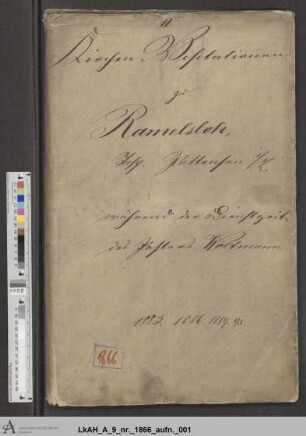 Kirchen-Visitationen
zu
Ramelsloh,
während der Dienstzeit
des Pastors Woltmann
1882. 1886 1889. 93.
1866
LkAH_A_9_nr._1866_aufn._001